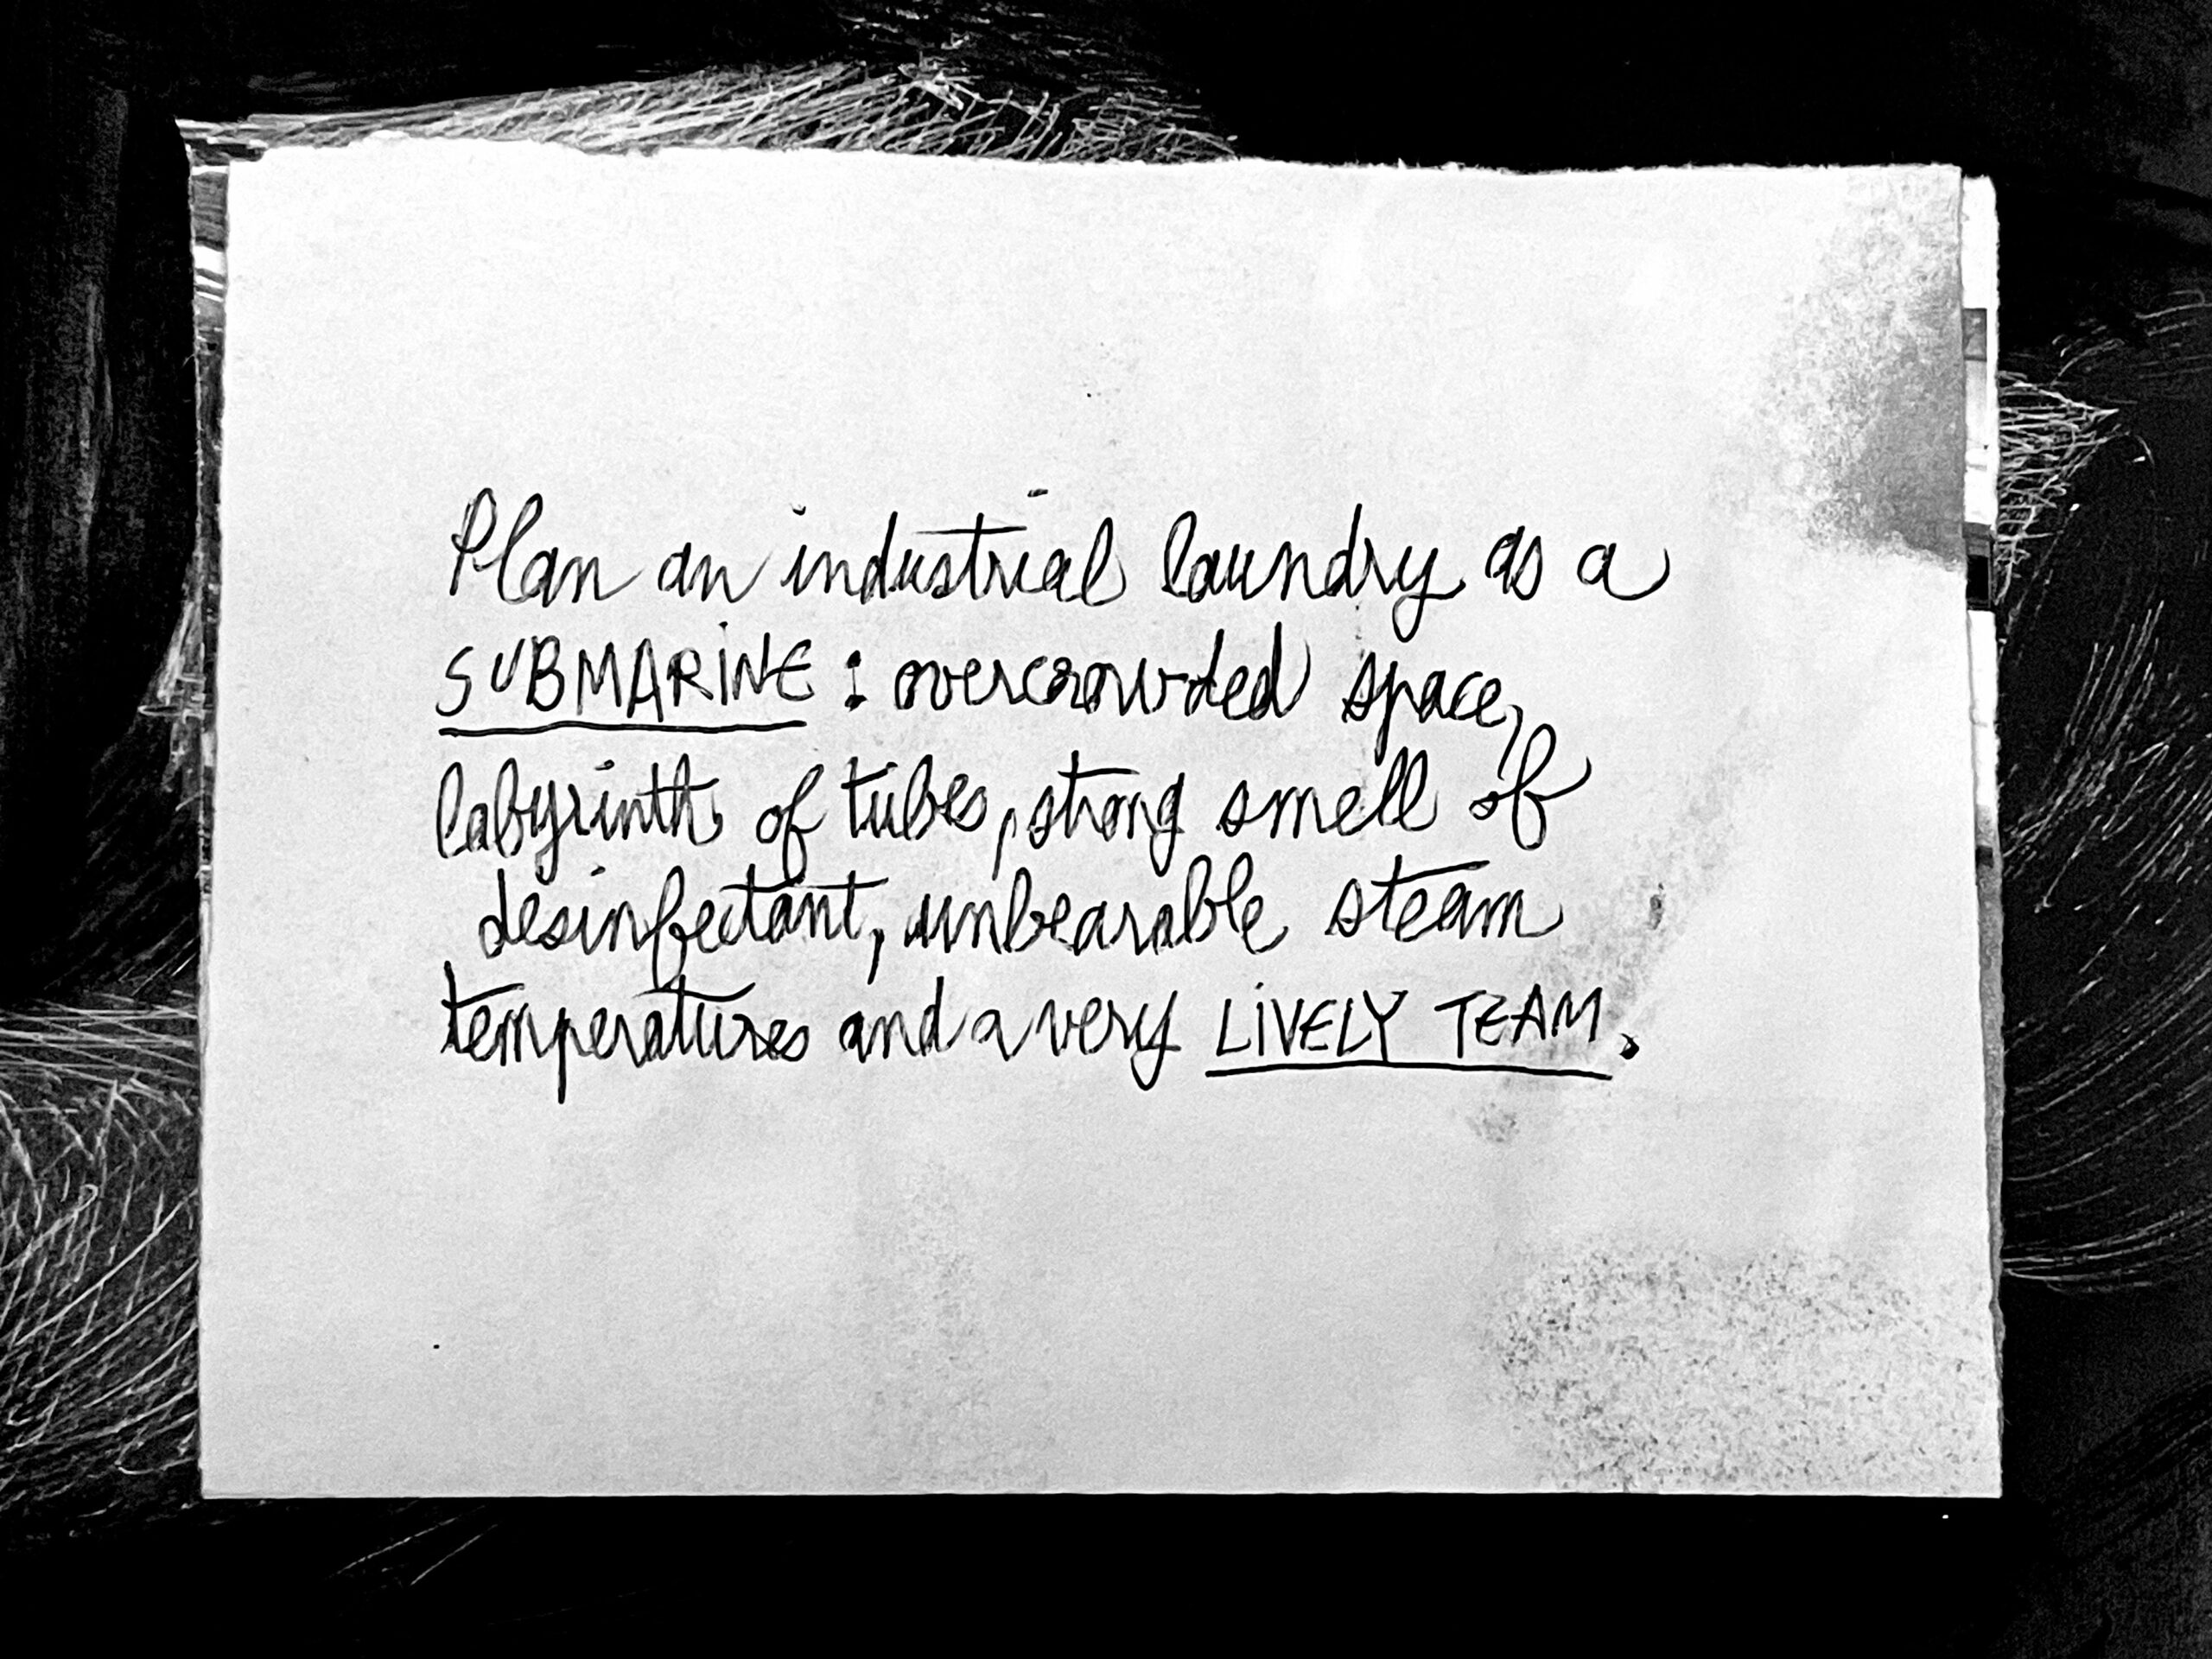 Plan an industrial laundry as a
SUBMARINE : overcrowded space,
labyrinth of tubes, strong smell of
desinfectant, unbearable steam
temperatures and a very LIVELY TEAM.